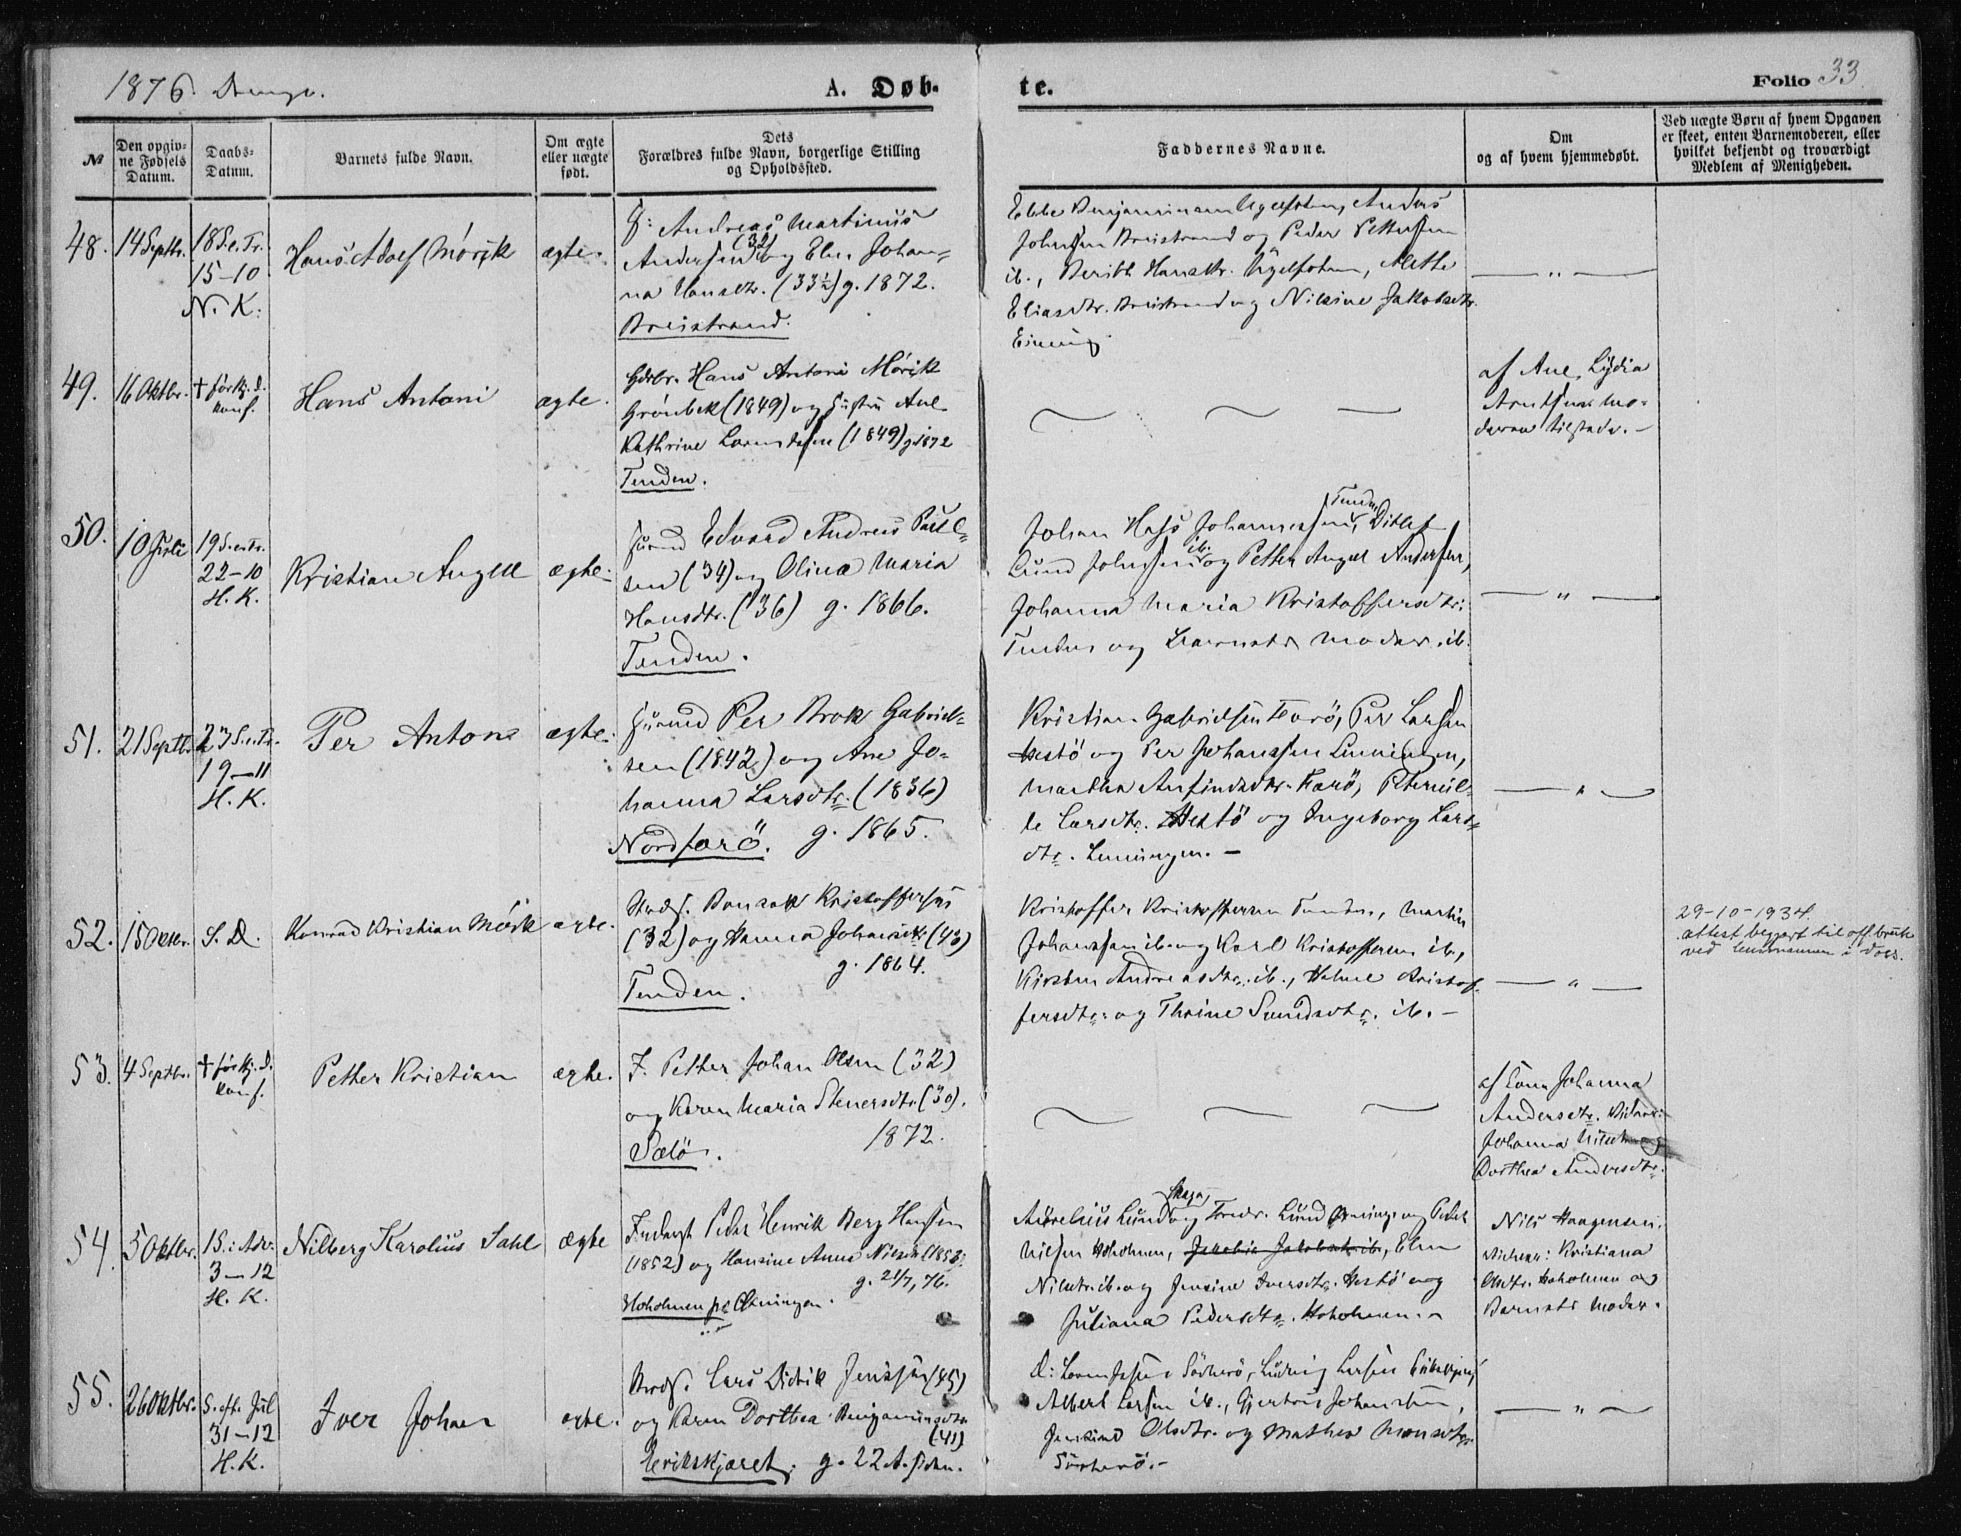 1876. Drenge.
A. Døb-
te.
Folio 33
№
Den opgiv-
ne Fødsels
Datum.
Daabs-
Datum.
Barnets fulde Navn.
Om ægte
eller uægte
født.
Dets
Forældres fulde Navn, borgerlige Stilling
og Opholdssted.
Faddernes Navne.
Om
og af hvem hjemmedøbt.
Ved uægte Børn af hvem Opgaven
er skeet, enten Barnemoderen, eller
hvilket bekjendt og troværdigt
Medlem af Menigheden.
48.
14 Septbr.
18 S. e. Tr.
15-10
N. K.
Hans Adolf Mörik
ægte.
Andreas Martinus
Andersen (32) og Elen Johan-
na Hansdtr. (33½) g. 1872.
Breistrand.
Ebbe Benjaminsen Anders
Johnsen Breistrand og Peder Pettersen
ib., Berith Hansdtr. Mette
Eliasdtr. Breistrand og Nilsine Jakobsdtr.
— " —
49.
16 Oktbr.
† før kj. d.
konf.
Hans Antoni
ægte.
Gdbr. Hans Antoni Mörik
Grönbek (1849) og Hustru Ane
Kathrine Lorentsen (1849) g. 1872
Tenden.
af Ane Lydia
Arntsen Mo-
deren tilstede. -
50.
10 Juli
19 S. e. Tr.
22-10
H. K.
Kristian Angell
ægte.
Edvard Andreas Paul-
sen (34) og Olina Maria
Hansdtr. (36) g. 1866.
Tenden.
Johan Hass Johannessen Tenden, Ditlef
Lund Johnsen ib. og Petter Angel Andersen,
Johanna Maria Kristoffersdtr.
Tenden og Barnets Moder ib.
— " —
51.
21 Septb.
23 S. e. Tr.
19-11
H. K.
Per Anton
ægte.
Per Brok Gabriel-
sen (1842) og Ane Jo-
hanna Larsdtr. (1836)
Nordfarö. g. 1865.
Kristian Gabrielsen Farö, Per Larsen
Hestö og Per Johanssen
Martha Arfindsdtr. Farö, Peternil-
le Larsdtr. Hestö og Ingeborg Lars-
dtr.
— " —
52.
15 Oktbr.
S. D.
Konrad Kristian Mörk
ægte.
Strds. Bonsak Kristoffersen
(32) og Hanna Johansdtr. (43)
g. 1864.
Tenden.
Kristoffer Kristoffersen Tenden, Martin
Johanssen ib. og Karl Kristoffersen ib.,
Kirsten Andreasdtr. ib., Kristof-
fersdtr. og Thrine Svendsdtr. ib. -
— " —
29-10-1934.
attest begjært til off. bruk
ved lensmannen i
53.
4 Septbr.
† før kj. D.
konf.
Petter Kristian
ægte.
F. Petter Johan Olsen (32)
og Karen Maria Stenersdtr. (30).
1872.
Sælö.
af Johanna
Andersdtr.
Johanna og
Dorthea Andersdtr.
54.
5 Oktbr.
1 S. i Adv.
3-12
H. K.
Nilberg Karolius Dahl
ægte
Peder Henrik Berg Hanssen
(1852) og Hansine Anna Nilsdtr. (1853)
g. 21/7, 76.
Hoholmen på Ökningen.
Aurelius Lund Skaga og Fredr. Lund Ökninge og Peder
Nilsen Hoholmen, Jakobia Jakobsdtr. ib., Elen
Nilsdtr. ib. og Jensine Iversdtr. Hestö og
Juliana Pedersdtr. Hoholmen. -
Nils Haagensen.
Kristiana
Olsdtr. Hoholmen og
Barnets Moder.
55.
26 Oktbr.
S. eft. Jul
31-12
H. K.
Iver Johan
ægte.
Strds. Lars Didrik Jenssen (45)
og Karen Dorthea Benjaminsdtr.
(41)
Erikskjæret. g. 22 A. siden.
Sösterö, Ludvig Larsen Erikskjæret,
Albert Larsen ib., Gjertrud
Olsdtr. og Mathea Monsdtr.
Söteró. -
— " —